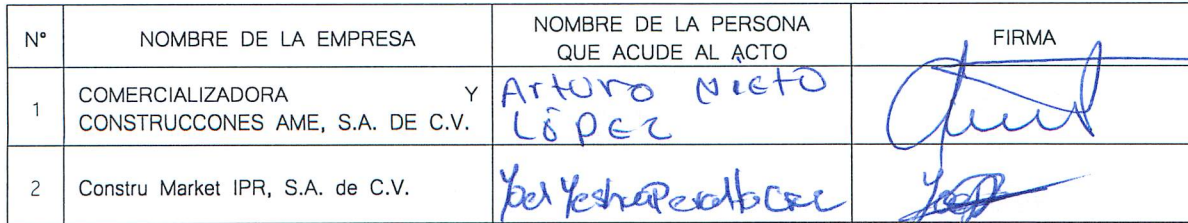 N° NOMBRE DE LA EMPRESA NOMBRE DE LA PERSONA QUE ACUDE AL ACTO FIRMA
1 COMERCIALIZADORA Y CONSTRUCCONES AME, S.A. DE C.V. Arturo Nieto López
2 Constru Market IPR, S.A. de C.V. Yoel